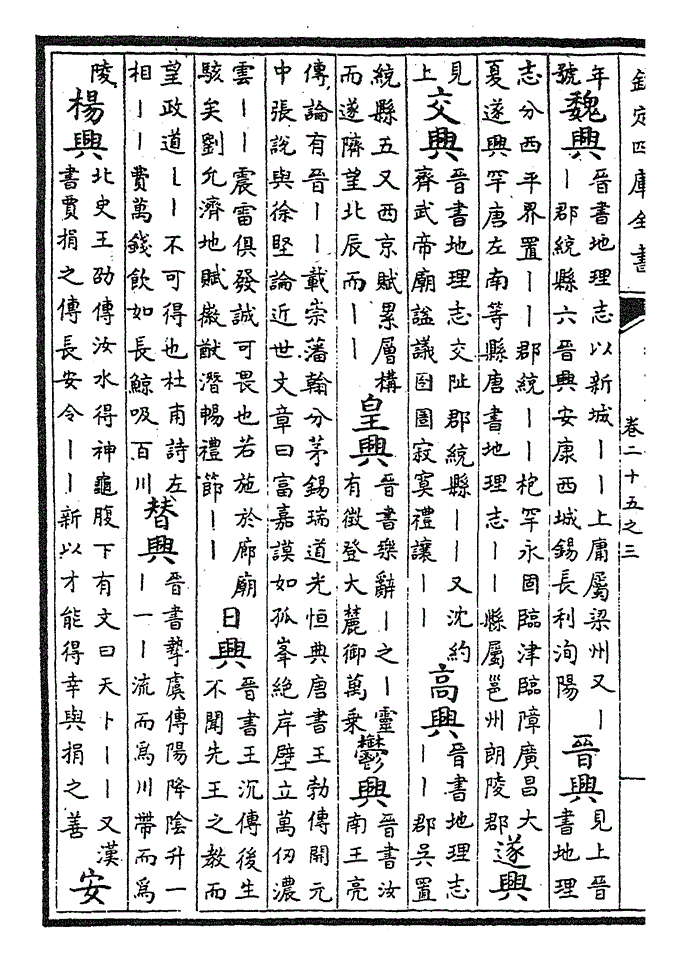 欽定四庫全書 卷二十五之三
年號魏興晉書地理志以新城丨丨上庸屬梁州又丨丨郡統縣六晉興安康西城錫長利洵陽晉興見上晉書地理
志分西平界置丨丨郡統丨丨枹罕永固臨津臨障廣昌大夏遂興罕唐左南等縣唐書地理志丨丨縣屬邕州朗陵郡遂興
見上交興晉書地理志交阯郡統縣丨丨又沈約齊武帝廟謚議囹圄寂寞禮讓丨丨高興晉書地理志丨丨郡吳置
統縣五又西京賦累層構而遂隮望北辰而丨丨皇興晉書樂辭丨之丨靈有徵登大麓御萬乘鬱興晉書汝南王亮
傳論有晉丨丨載崇藩翰分茅錫瑞道光恒典唐書王勃傳開元中張說與徐堅論近世文章曰富嘉謨如孤峯絶岸壁立萬仞濃
雲丨丨震雷俱發誠可畏也若施於廊廟駭矣劉允濟地賦徽猷潛暢禮節丨丨日興晉書王沉傳後生不聞先王之教而
望政道丨丨不可得也杜甫詩左相丨丨費萬錢飲如長鯨吸百川替興晉書摯虞傳陽降陰升一丨一丨流而爲川帶而爲
陵楊興北史王劭傳汝水得神龜腹下有文曰天卜丨丨又漢書賈捐之傳長安令丨丨新以才能得幸與捐之善安